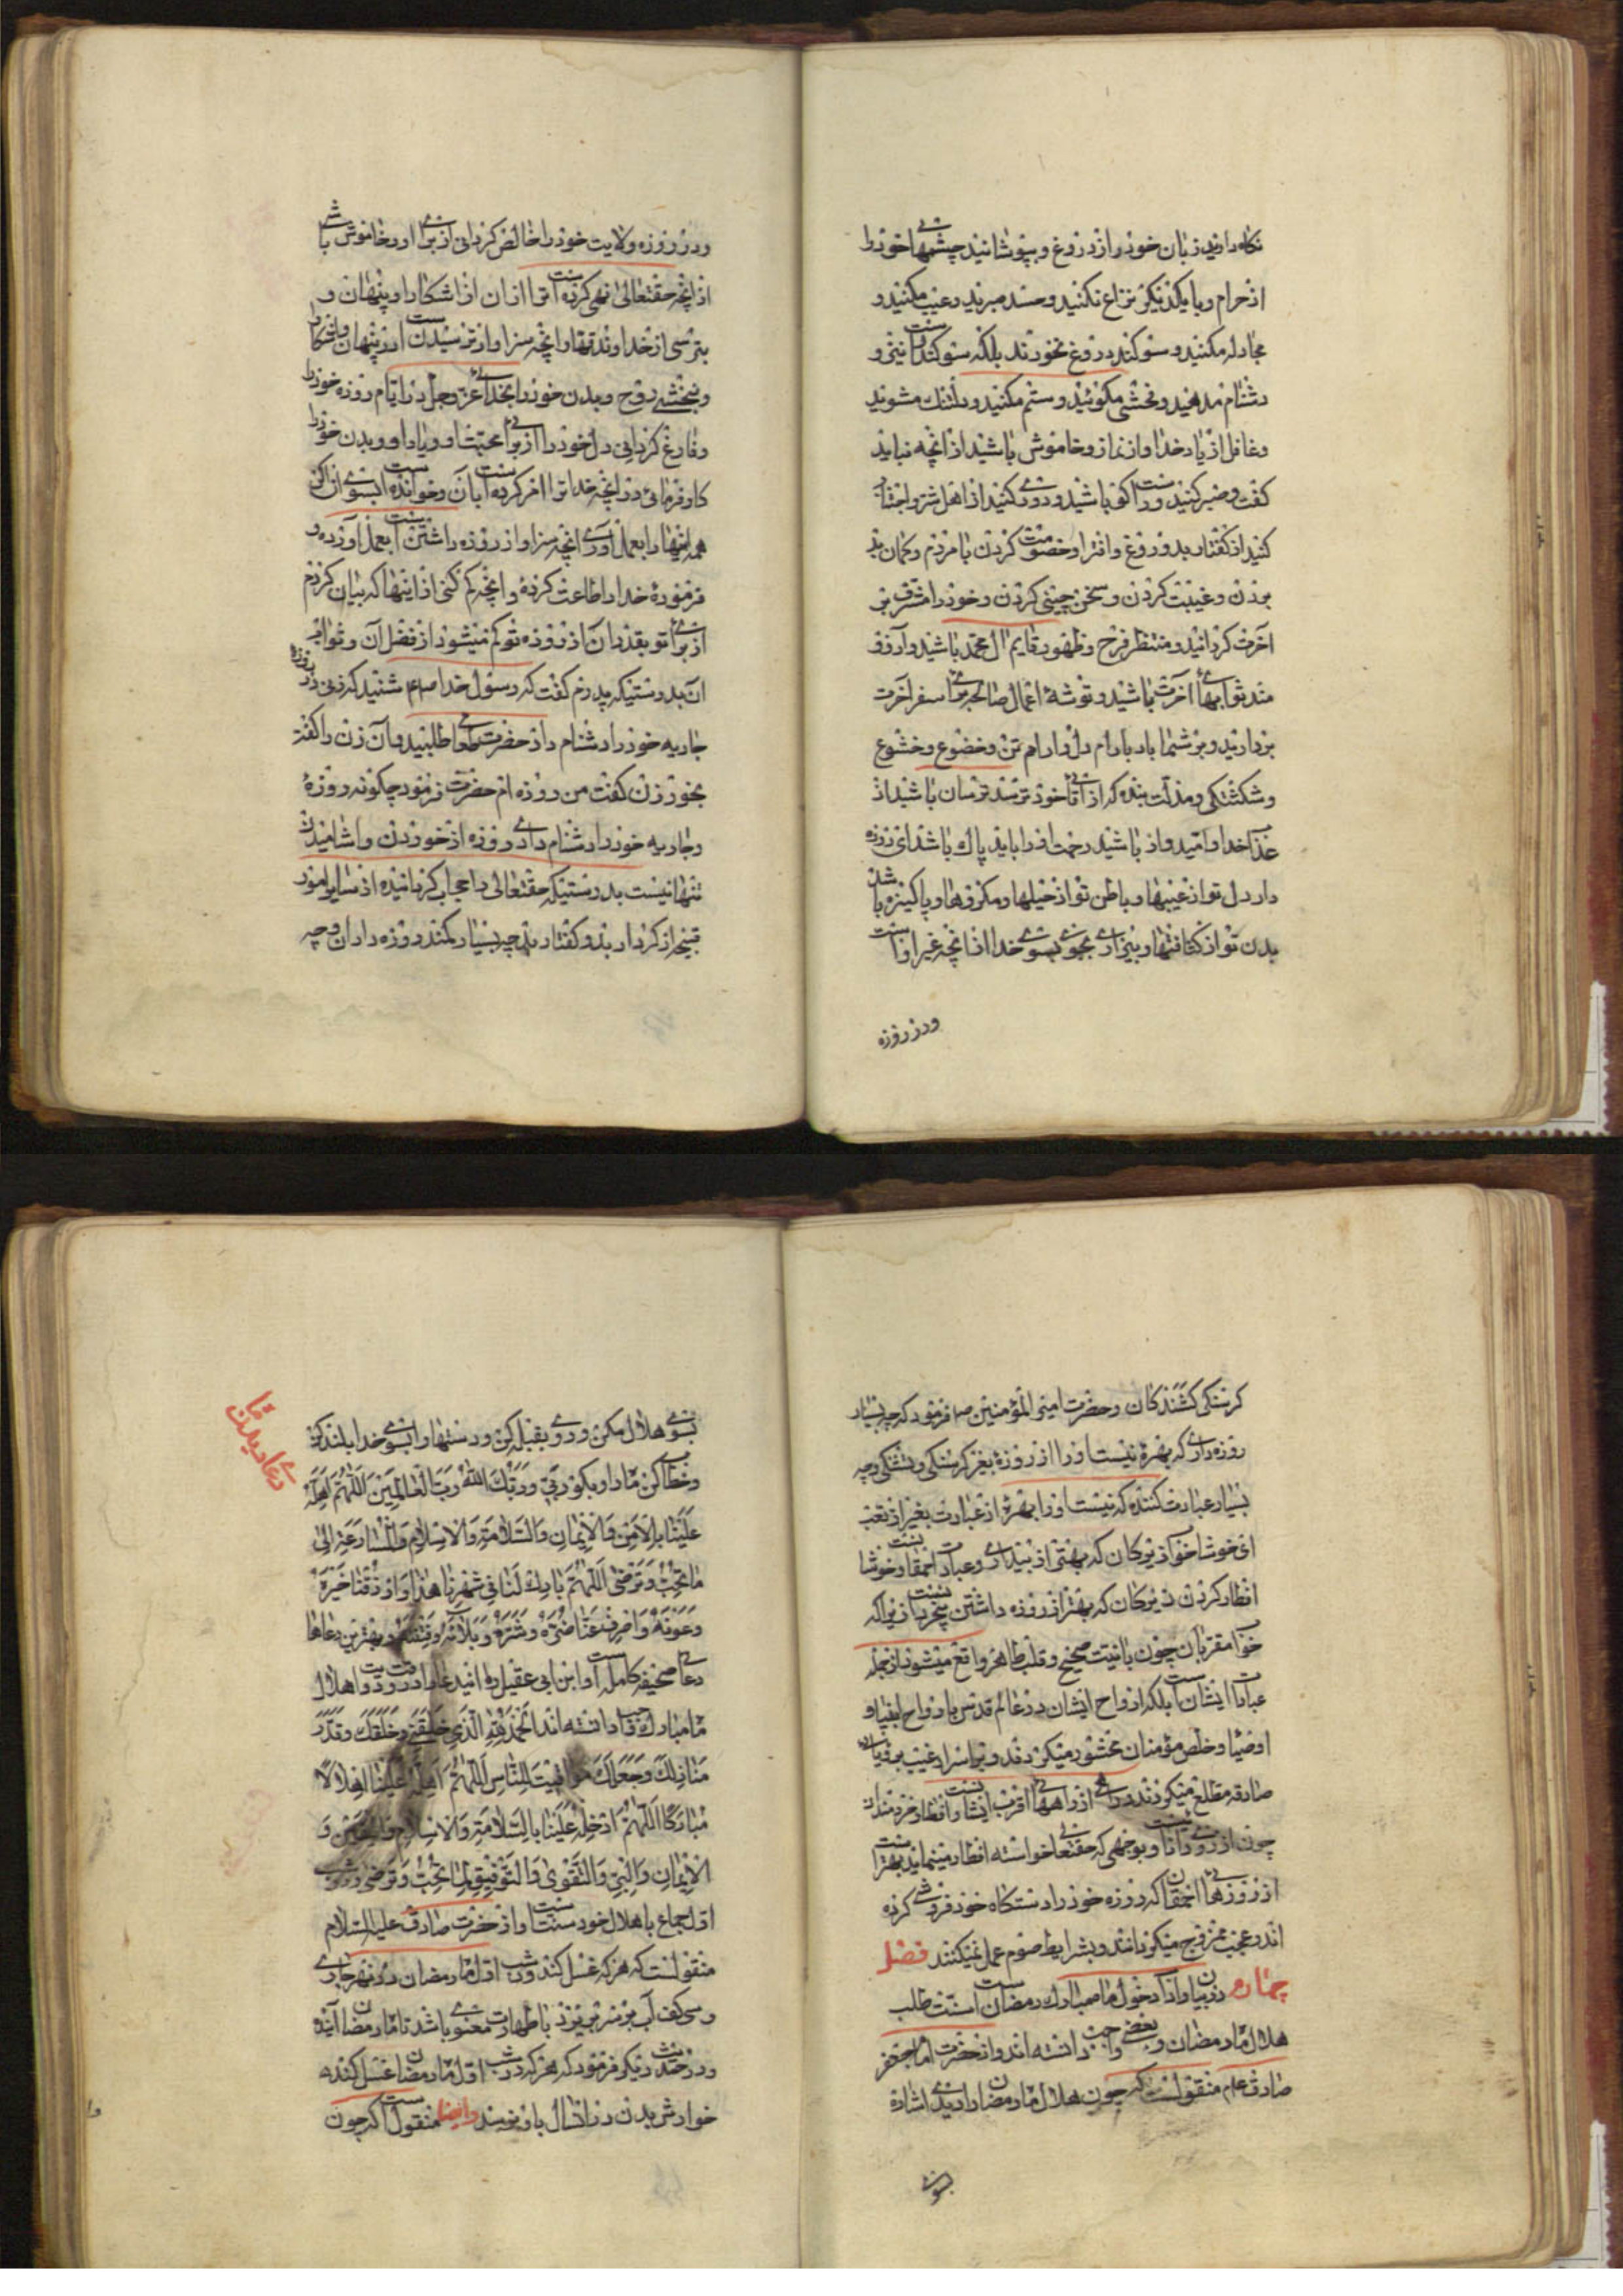 نگاه دارید زبان خود را از دروغ و بپوشانید چشمهای خود را
از حرام و با یکدیگر نزاع نکنید و حسد مبرید و غیبت مکنید و
مجادله مکنید و سوگند دروغ نخورند بلکه سوگند راست نیز و
دشنام مدهید و فحش مگوئید و ستم مکنید و دلتنک مشوید
و غافل از یاد خدا و از نماز و خاموش باشید از آنچه نباید
گفت و صبر کنید و راست گو باشید و دوری کنید از اهل شر و اجتناب
کنید از گفتار بد و دروغ و افترا و خصومت کردن با مردم و گمان بد
بردن و غیبت کردن و سخن چینی کردن و خود را مشرف بر
آخرت گردانید و منتظر فرج و ظهور قایم آل محمد باشید و آرزو
مند ثوابهای آخرت باشید و توشهٔ اعمال صالحه برای سفر آخرت
بردارید و بر شما باد بارام دل و ارام تن و خضوع و خشوع
و شکستگی و مذلت بنده که از آقای خود ترسد ترسان باشید از
عذاب خدا و امیدوار باشید رحمت او را باید پاک باشد ای روزه
دار دل تو از عیبها و باطن تو از حیلها و مکرها و پاکیزه باشد
بدن تو از کثافتها و بیزاری بجوی بسوی خدا از آنچه غیر اوست
ودر روزه
ودر روزه ولایت خود را خالص گردانی از برای او و خاموش باشی
از آنچه حقتعالی نهی کرده است ترا از آن از اشکارا و پنهان و
بترسی از خداوند قهار آنچه سزاوار ترسیدن اوست در پنهان و آشکارا
و ببخشی روح و بدن خود را بخدای عز و جل در ایام روزه خود را
و فارغ گردانی دل خود را از برای محبت او و یاد او و بدن خود را
کار فرمائی در آنچه خدا ترا امر کرده است بآن و خوانده است بسوی آن اگر
همه اینها را بعمل آوری آنچه سزاوار روزه داشتن است بعمل آورده و
فرمودهٔ خدا را اطاعت کردهٔ و آنچه کم کنی از اینها که بیان کردم
از برای تو بقدر آن از روزه تو کم میشود از فضل آن و ثواب
آن بدرستیکه پدرم گفت که رسول خدا صلعم شنید که زنی در روزه
جاریه خود را دشنام داد حضرت طعامی طلبید و آن زن را گفت
بخور زن گفت من روزه ام حضرت فرمود چگونه روزهٔ
و جاریه خود را دشنام دادی روزه از خوردن و آشامیدن
تنها نیست بدرستیکه حقتعالی را حجاب گردانیده از سایر امور
قبیحه از کردار بد و گفتار بد چه بسیار کمند روزه داران و چه
گرسنگی کشندگان و حضرت امیر المؤمنین ص فرمود که چه بسیار
روزه داری که بهره نیست او را از روزه بغیر گرسنگی و تشنگی و چه
بسیار عبادت کننده که نیست او را بهرهٔ از عبادت بغیر از تعب
ای خوشا خواب زیرکان که بهتر از بیداری و عبادت احمقانست و خوشا
افطار کردن زیرکان که بهتر از روزه داشتن بیخردانست زیرا که
خواب مقربان چون با نیت صحیح و قلب طاهر واقع میشود از جمله
عبادات ایشان است بلکه ارواح ایشان در عالم قدس با ارواح انبیا و
اوصیا و خلص مؤمنان محشور میگردند و بر اسرار غیب برؤیای
صادقه مطلع میگردند و
چون از روی دانائیست و بوجهی که حقتعالی خواسته افطار مینماید بهتر است
از روزهای احمقان که روزه خود را دستگاه خود فروشی کرده
اند و بعجب ممزوج میگردانند و بشرایط صوم عمل نمیکنند فصل
چهارم در بیان آداب دخول ماه مبارک رمضان است سنت است طلب
هلال ماه رمضان و بعضی واجب دانسته اند و از حضرت امام جعفر
صادق علیه السلام منقولست که چون هلال ماه رمضان را دیدی اشاره
بسوی
بسوی هلال مکن و روی بقبله کن و دستها را بسوی خدا بلند کن
و خطاب کن ماه را و بگو رَبّی وَرَبُّکَ اللهُ رَبُّ الْعالَمینَ اَللّهُمَّ اَهِلَّهُ
عَلَیْنا بِالْاَمْنِ وَالْایمانِ وَالسَّلامَةِ وَالْاِسْلامِ وَالْمُسارَعَةِ اِلی
ما تُحِبُّ وَتَرْضی اَللّهُمَّ بارِکْ لَنا فی شَهْرِنا هذا وَارْزُقْنا خَیْرَهُ
وَعَوْنَهُ وَاصْرِفْ عَنّا ضُرَّهُ وَشَرَّهُ وَبَلاءَهُ وَفِتْنَتَهُ و بهترین دعاها
دعای صحیفه کامله است و ابن ابی عقیل این دعا را در وقت رویت هلال
ماه مبارک واجب دانسته اند اَلْحَمْدُ لِلّهِ الَّذی خَلَقَنی وَخَلَقَکَ وَقَدَّرَ
مَنازِلَکَ وَجَعَلَکَ مَواقیتَ لِلنّاسِ اَللّهُمَّ اَهِلَّهُ عَلَیْنا اِهْلالاً
مُبارَکاً اَللّهُمَّ اَدْخِلْهُ عَلَیْنا بِالسَّلامَةِ وَالْاِسْلامِ وَالْیَقینِ وَ
الْایمانِ وَالْبِرِّ وَالتَّقْوی وَالتَّوْفیقِ لِما تُحِبُّ وَتَرْضی و در شب
اول جماع با هلال خود سنت است و از حضرت صادق علیه السلام
منقولست که هر که غسل کند در شب اول ماه رمضان در نهر جاری
و سی کف آب بر سر بریزد با طهارت معنوی باشد تا ماه رمضان آینده
و در حدیث دیگر فرمود که هر که در شب اول ماه رمضان غسل کند
خوارش بدن در آنسال باو نرسد و ایضا منقول است که چون
دعای دیدن ماه